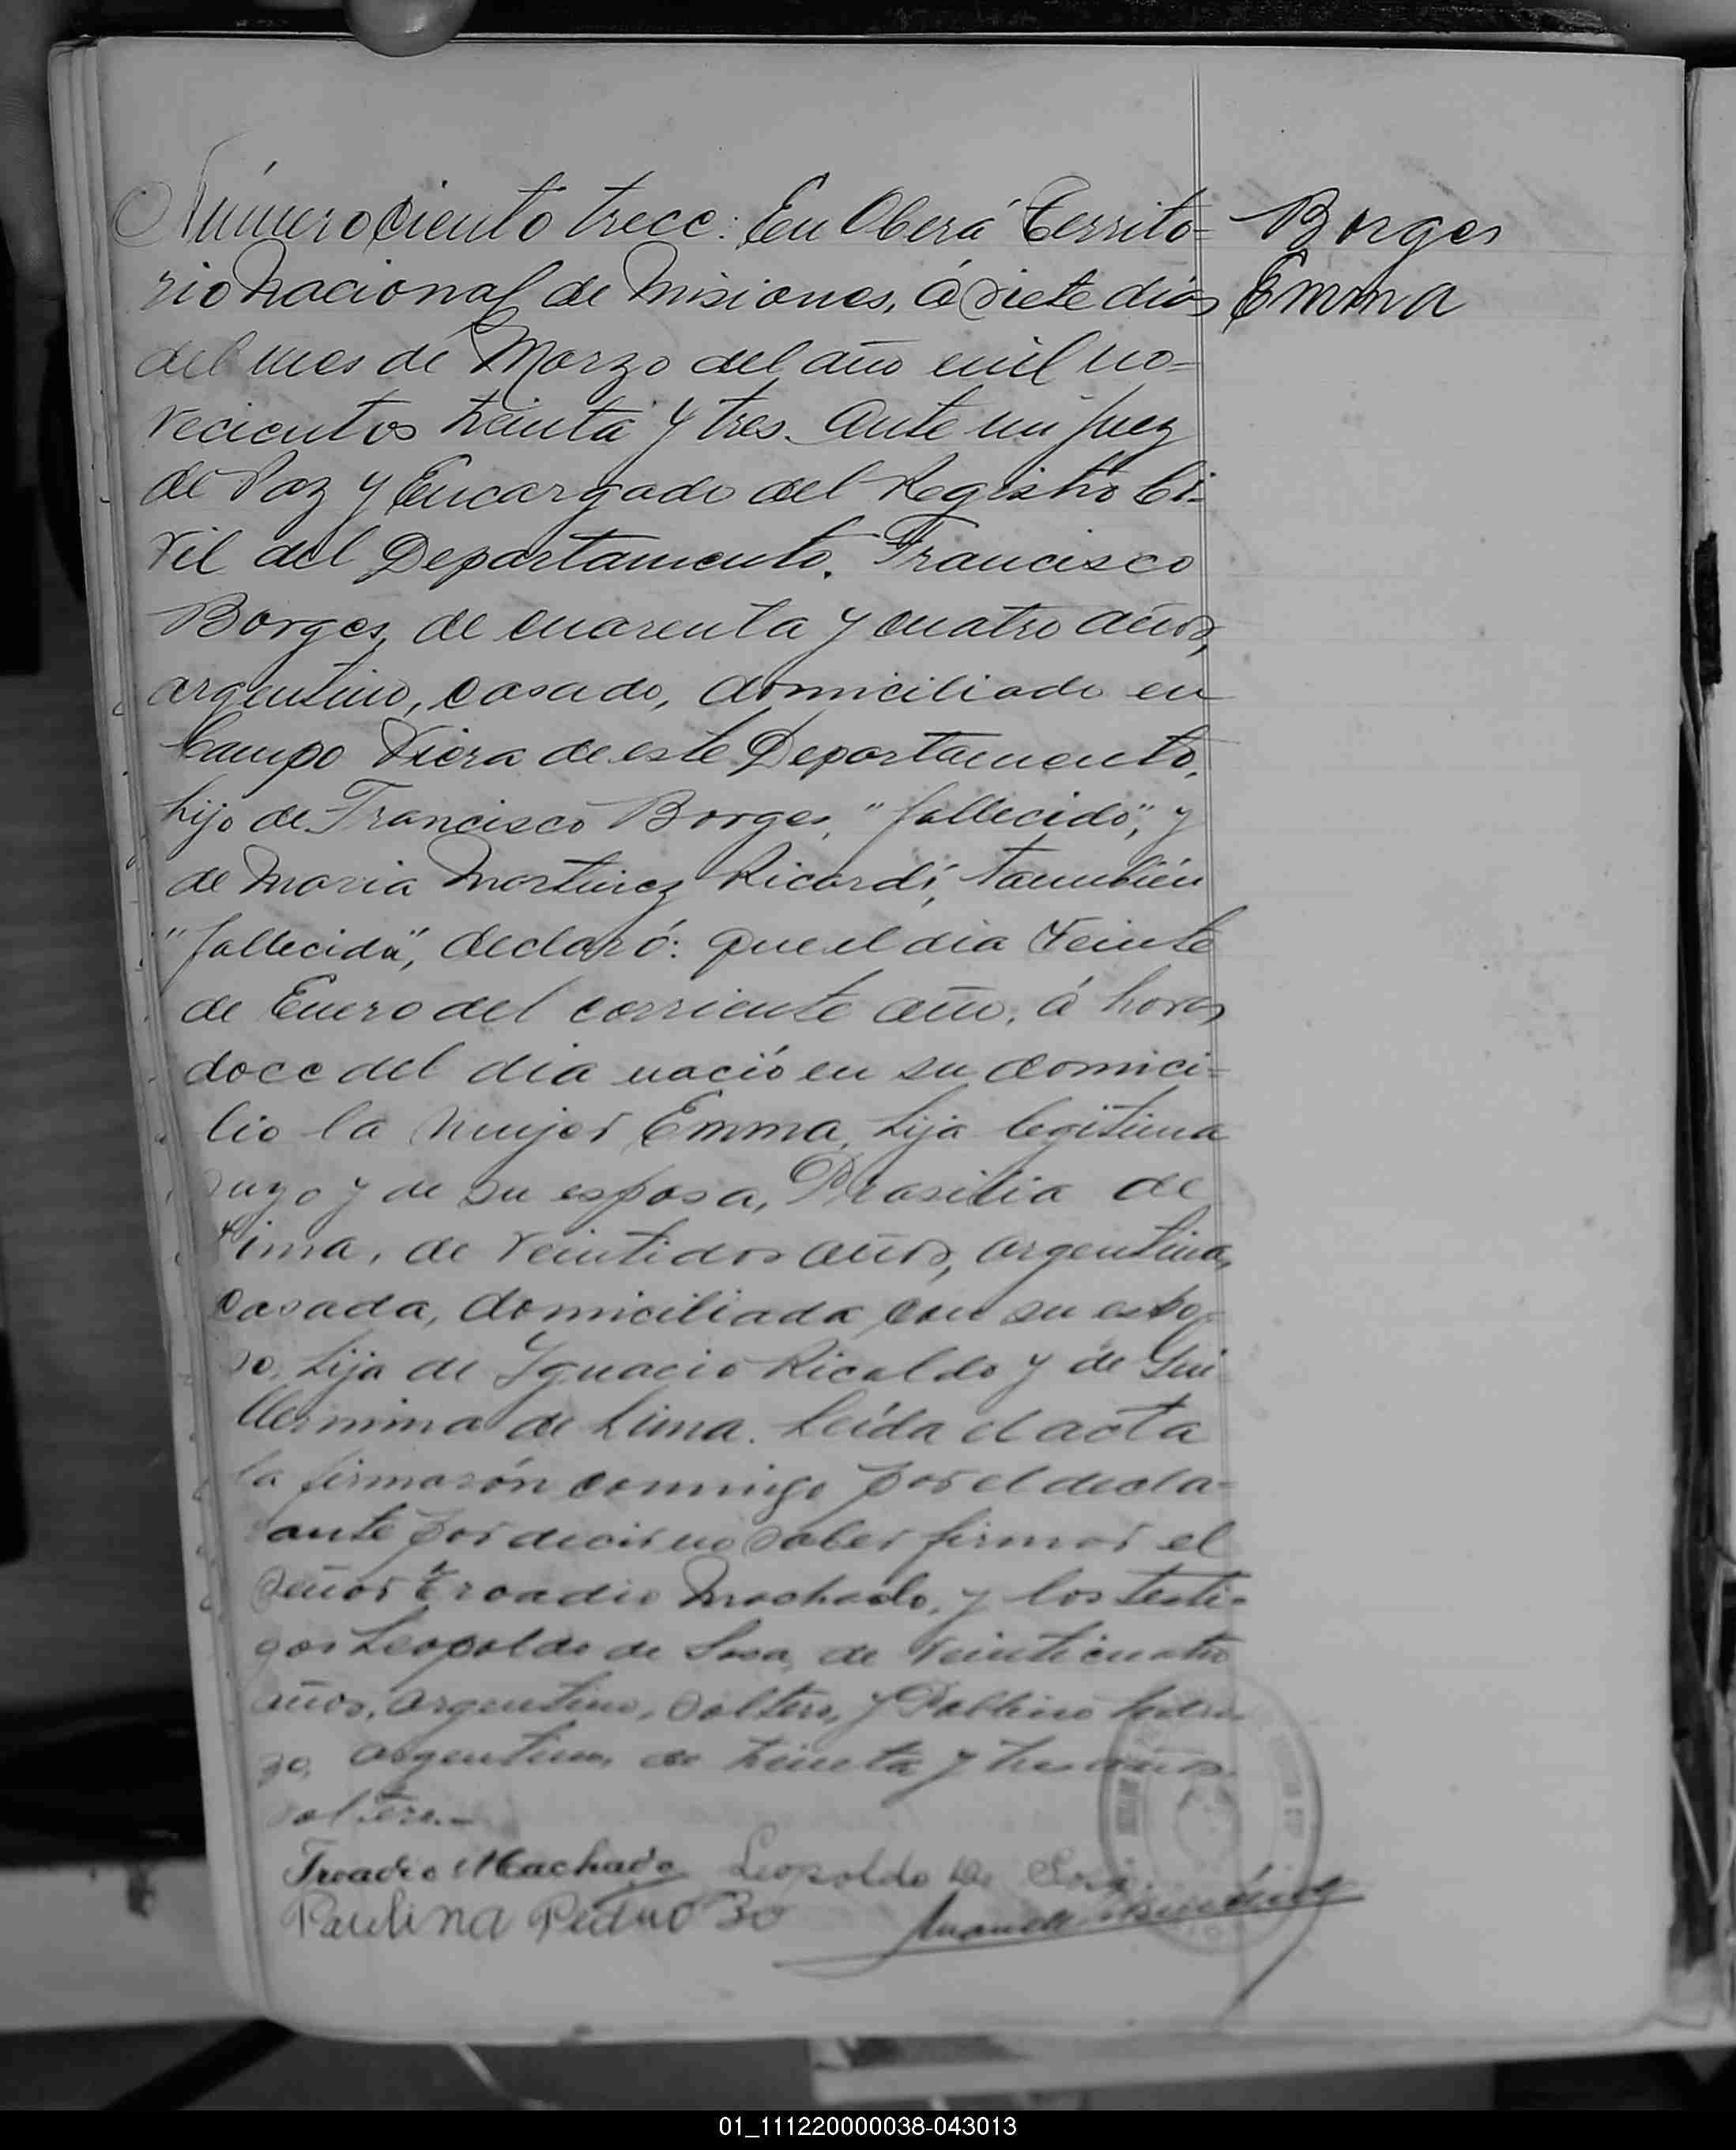 Número ciento trece: En Oberá Territo=
rio Nacional de Misiones, á siete dias
del mes de Marzo del año mil no=
vecientos treinta y tres. Ante mi Juez
de Paz y Encargado del Registro Ci=
vil del Departamento. Francisco
Borges, de cuarenta y cuatro años,
argentino, casado, domiciliado en
Campo Viera de este Departamento,
hijo de Francisco Borges, "fallecido", y
de Maria Martinez Ricardi, tambien
"fallecida", declaró: que el dia veinte
de Enero del corriente año, á horas
doce del dia nació en su domici=
lio la mujer Emma, hija legitima
suya y de su esposa, Prasilia de
Lima, de veintidos años, argentina,
casada, domiciliada con su espo=
so, hija de Ignacio Ricaldo y de Gui
llermina de Lima. Leída el acta
la firmarón conmigo por el decla=
ante por decir no saber firmar el
señor Troadio Machado, y los testi=
gos Leopoldo de Sosa, de veinticuatro
años, argentino, soltero, y
zo, argentino, de treinta y tres años
soltero.-
Troadio Machado Leopoldo De Sosa
Paulina
Borges
Emma
01_111220000038-043013